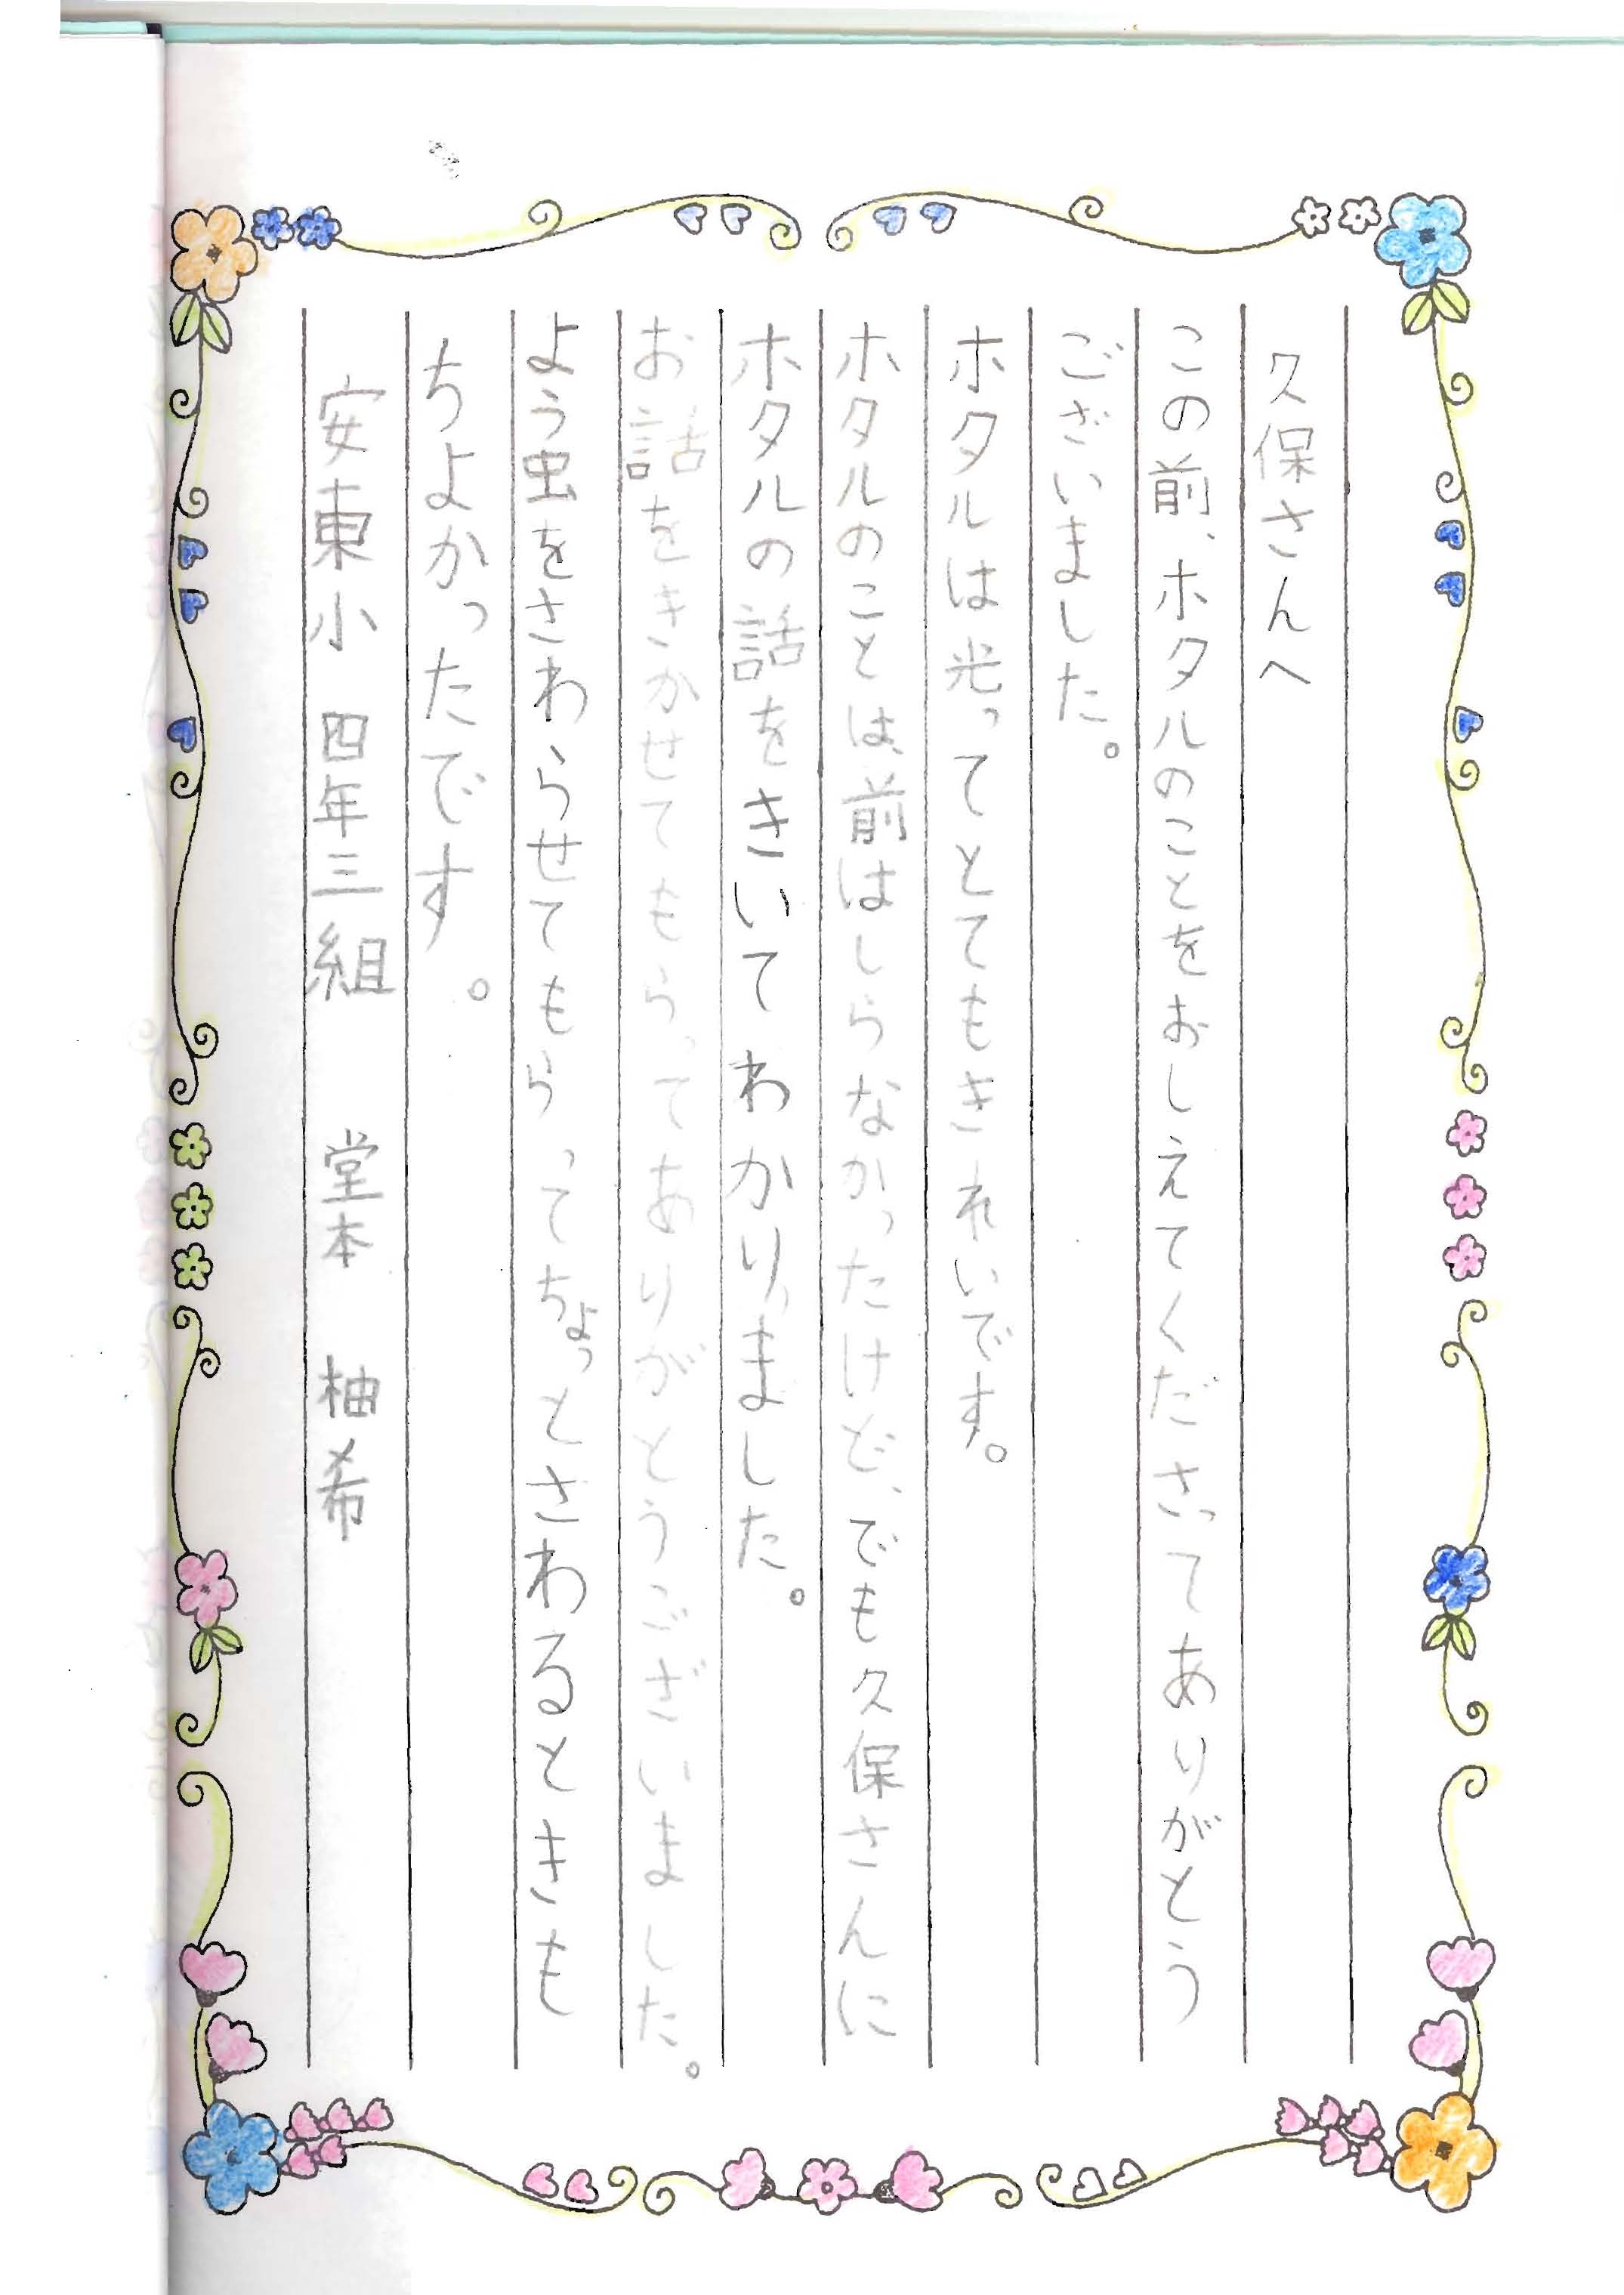 久保さんへ
この前、ホタルのことをおしえてくださってありがとう
ございました。
ホタルは光ってとてもきれいです。
ホタルのことは、前はしらなかったけど、でも久保さんに
ホタルの話をきいてわかりました。
お話をきかせてもらってありがとうございました。
よう虫をさわらせてもらってちょっとさわるときも
ちよかったです。
安東小 四年三組 堂本 柚希